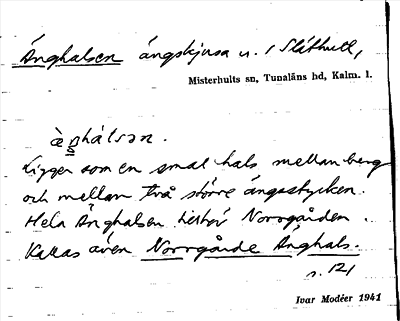 Änghalsen ängskjusa u. / Slåthult,
Misterhults sn, Tunaläns hd, Kalm. l.
ligger som en smal hals mellan berg
och mellan två större ängsstycken.
Hela Änghalsen tillhör Norrgården.
Kallas även Norrgårde Änghals.
s. 121
Ivar Modéer 1941